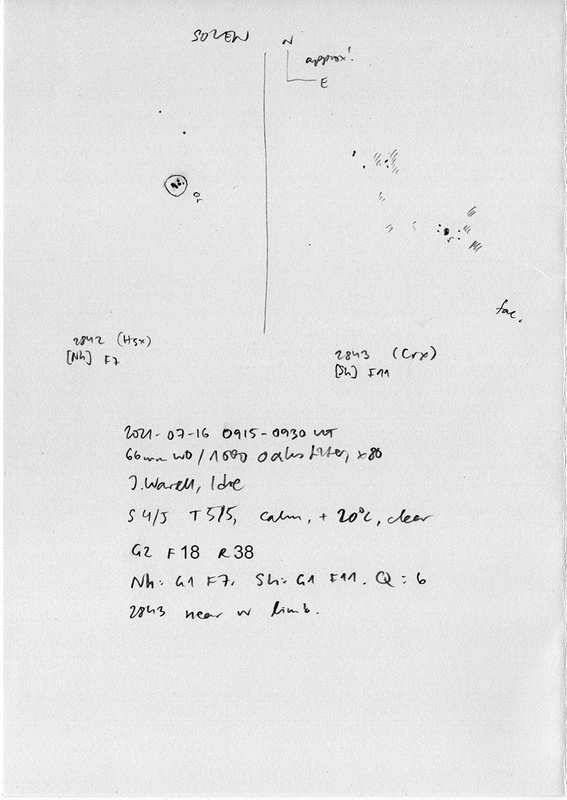 SOLEN
N
approx!
E
fac.
2842 (Hsx)
[Nh] F7
2843 (Crx)
[Sh] F11
2021-07-16 0915-0930 UT
66mm WO / 1000 Oaks filter, x80
J. Warell, Idre
S 4/5 T 5/5, calm, +20°C, clear
G2 F18 R38
Nh: G1 F7, Sh: G1 F11. Q = 6
2843 near W limb.